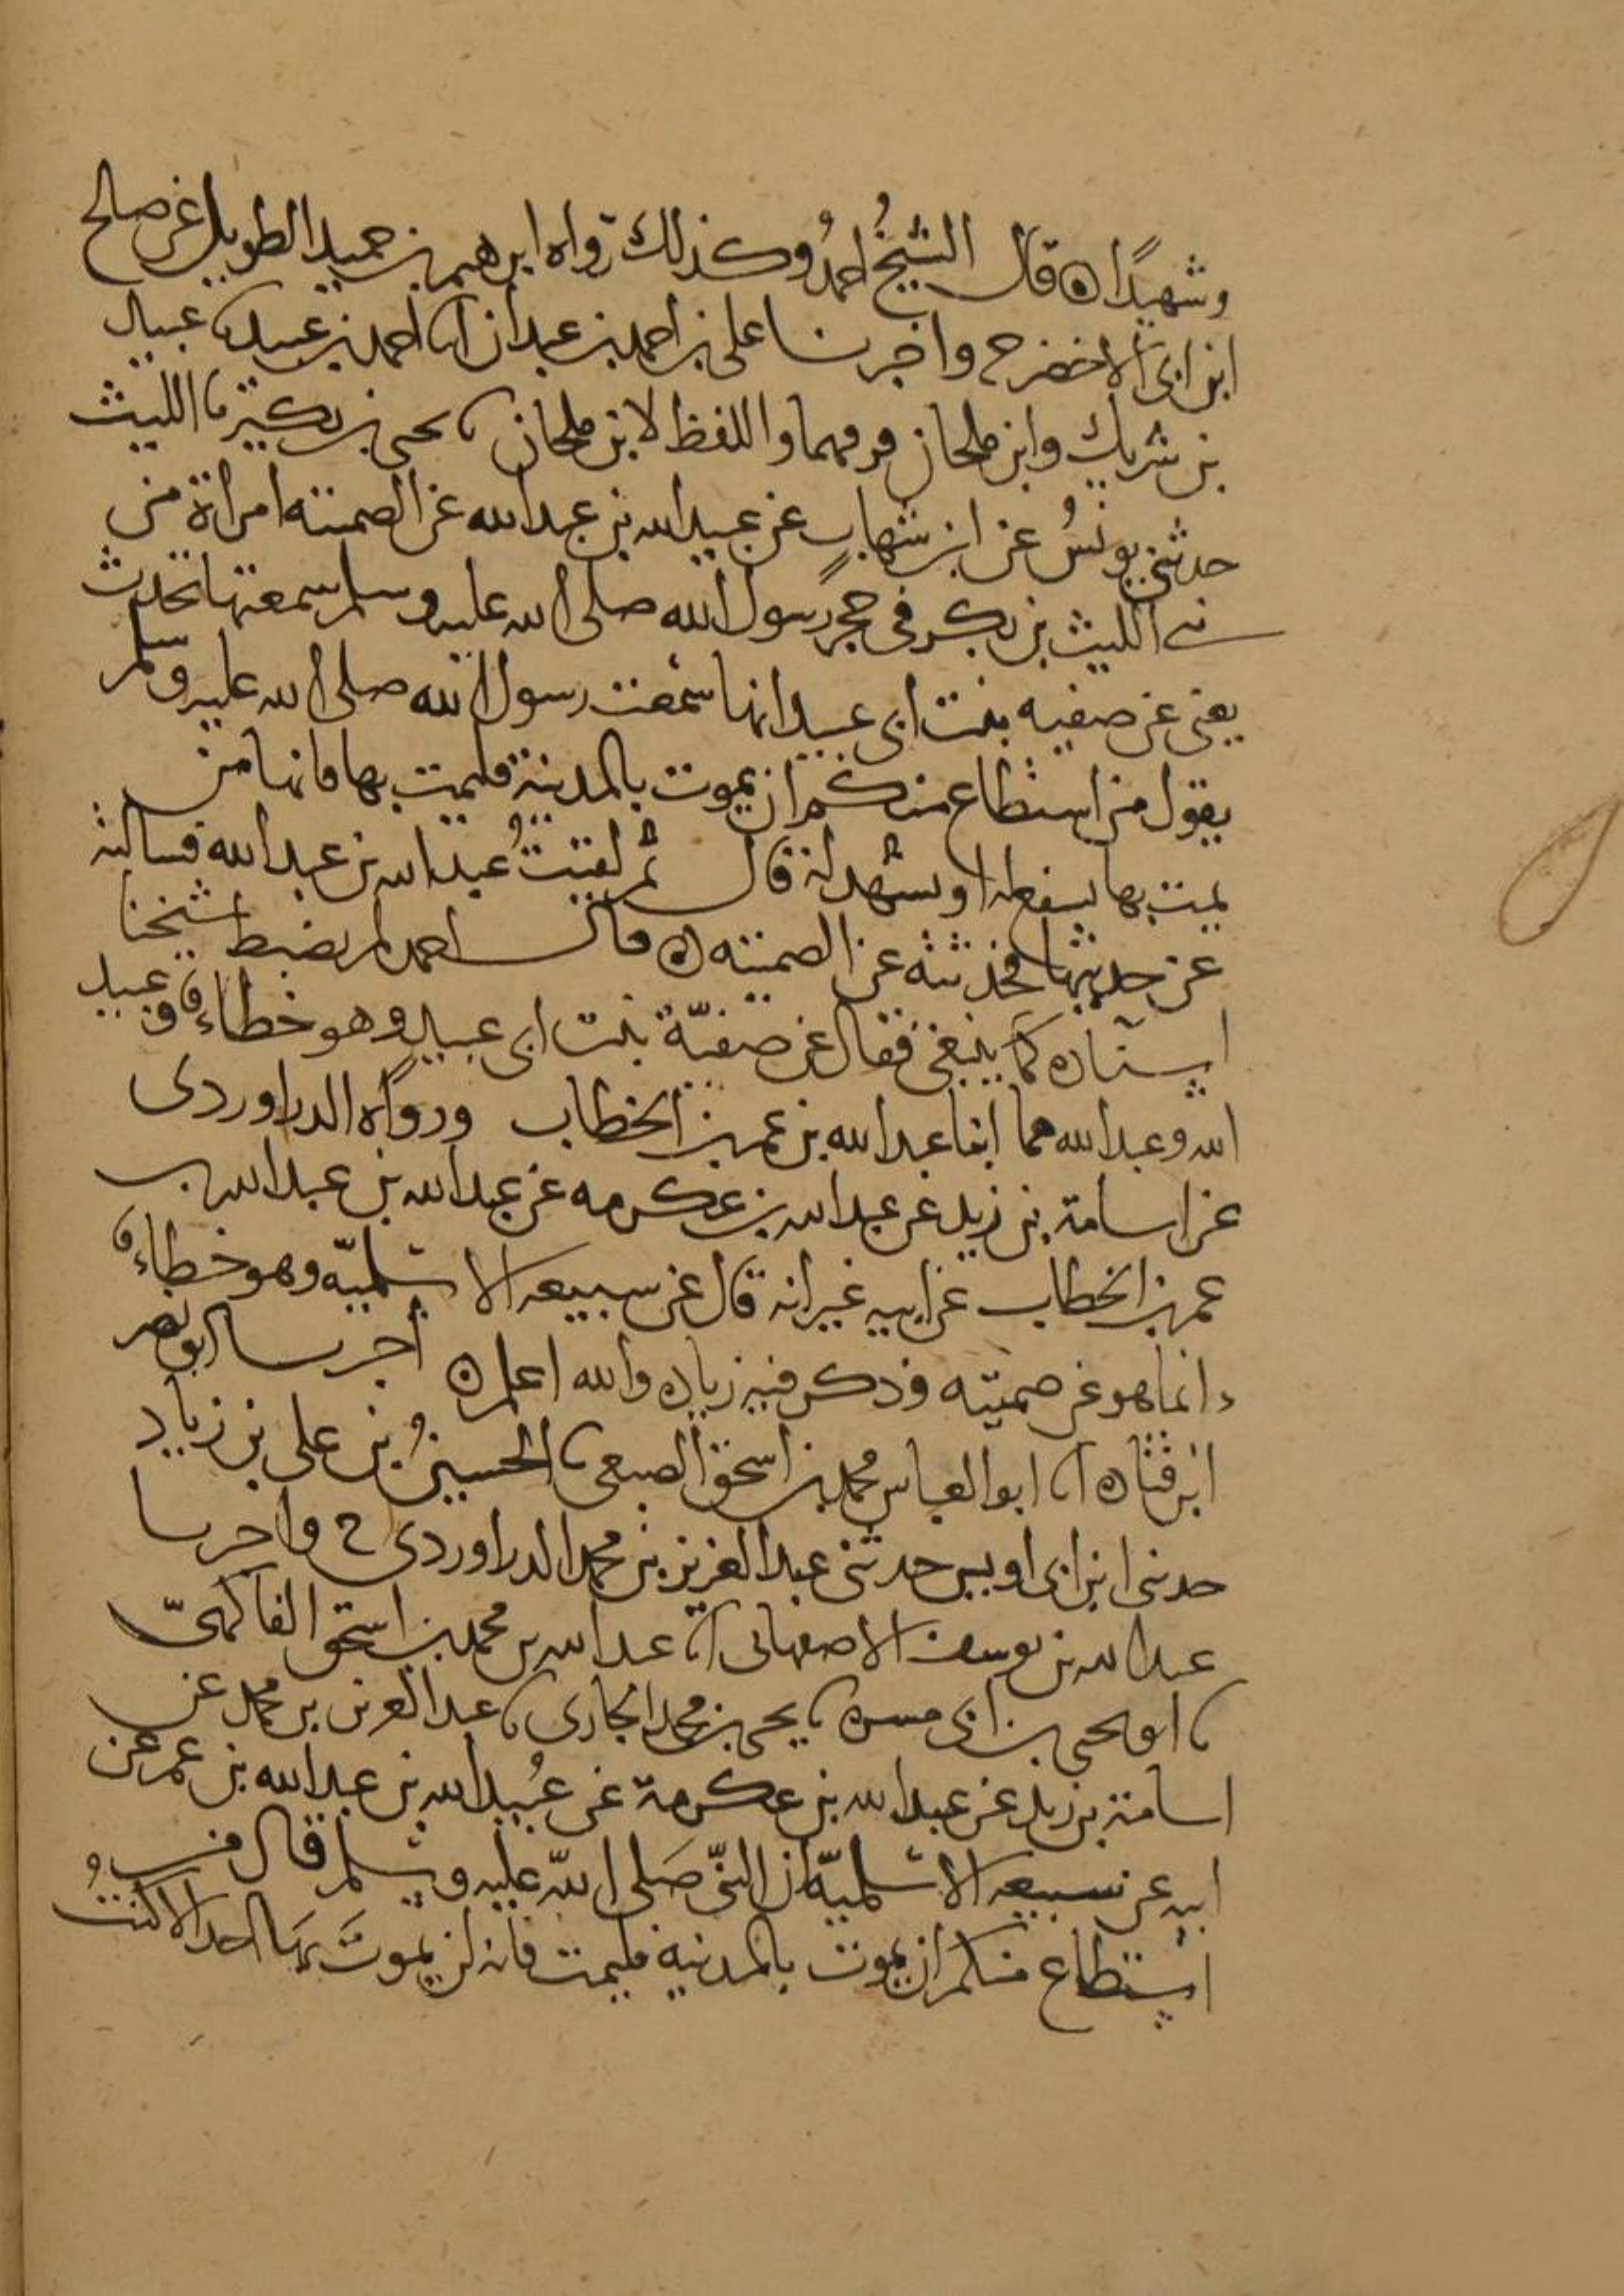 وشهيدًا ه قال الشيخُ احمدُ وكذلك رواه ابرهيم بن حميد الطويل عن صالح
ابن ابى الاخضر ح واخبرنا على بن احمد بن عبدان انا احمد بن عبيد نا عبيد
بن شريك وابن ملحان فرقهما واللفظ لابن ملحان نا يحيى بن بكير نا الليث
حدثني يونسُ عن ابن شهابٍ عن عبيد الله بن عبد الله عن الصميته امراة من
بنى الليث بن بكر فى حجر رسول الله صلى الله عليه وسلم سمعتها تحدث
يعنى عن صفيه بنت ابى عبيد انها سمعت رسول الله صلى الله عليه وسلم
يقول من استطاع منكم ان يموت بالمدينة فليمت بها فانها من
يمت بها يشفع له او يشهد له قال ثم لقيتُ عبد الله بن عبد الله فسالته
عن حديثها فحدثنيه عن الصميته ه قال احمد لم يضبط شيخنا
اسناده كما ينبغي فقال عن صفيّة بنت ابى عبيد وهو خطاء وعبيد
الله وعبد الله هما ابنا عبد الله بن عمر بن الخطاب ورواه الدراوردى
عن اسامة بن زيد عن عبد الله بن عكرمه عن عبد الله بن عبد الله بن
عمر بن الخطاب عن ابيه غير انه قال عن سبيعه الاسلميّه وهو خطاء
وانما هو عن صميته وذكر فيه زياده والله اعلم ه اخبرنا ابو نصر
ابن قتاده انا ابو العباس محمد بن اسحق الصبغى نا الحسينُ بن على بن زياد
حدثنى ابن ابى اويس حدثنى عبد العزيز بن محمد الدراوردى ح واخبرنا
عبد الله بن يوسف الاصفهانى انا عبد الله بن محمد بن اسحق الفاكهىّ
نا ابو يحيى بن ابى مسره نا يحيى بن محمد الجارى نا عبد العزيز بن محمد عن
اسامة بن زيد عن عبد الله بن عكرمة عن عُبيد الله بن عبد الله بن عمر عن
ابيه عن سبيعه الاسلميّه ان النبىّ صَلى الله عليه وسلم قال من
استطاع منكم ان يموت بالمدينه فليمت فانه لن يموتَ بهَا احد الا كنتُ